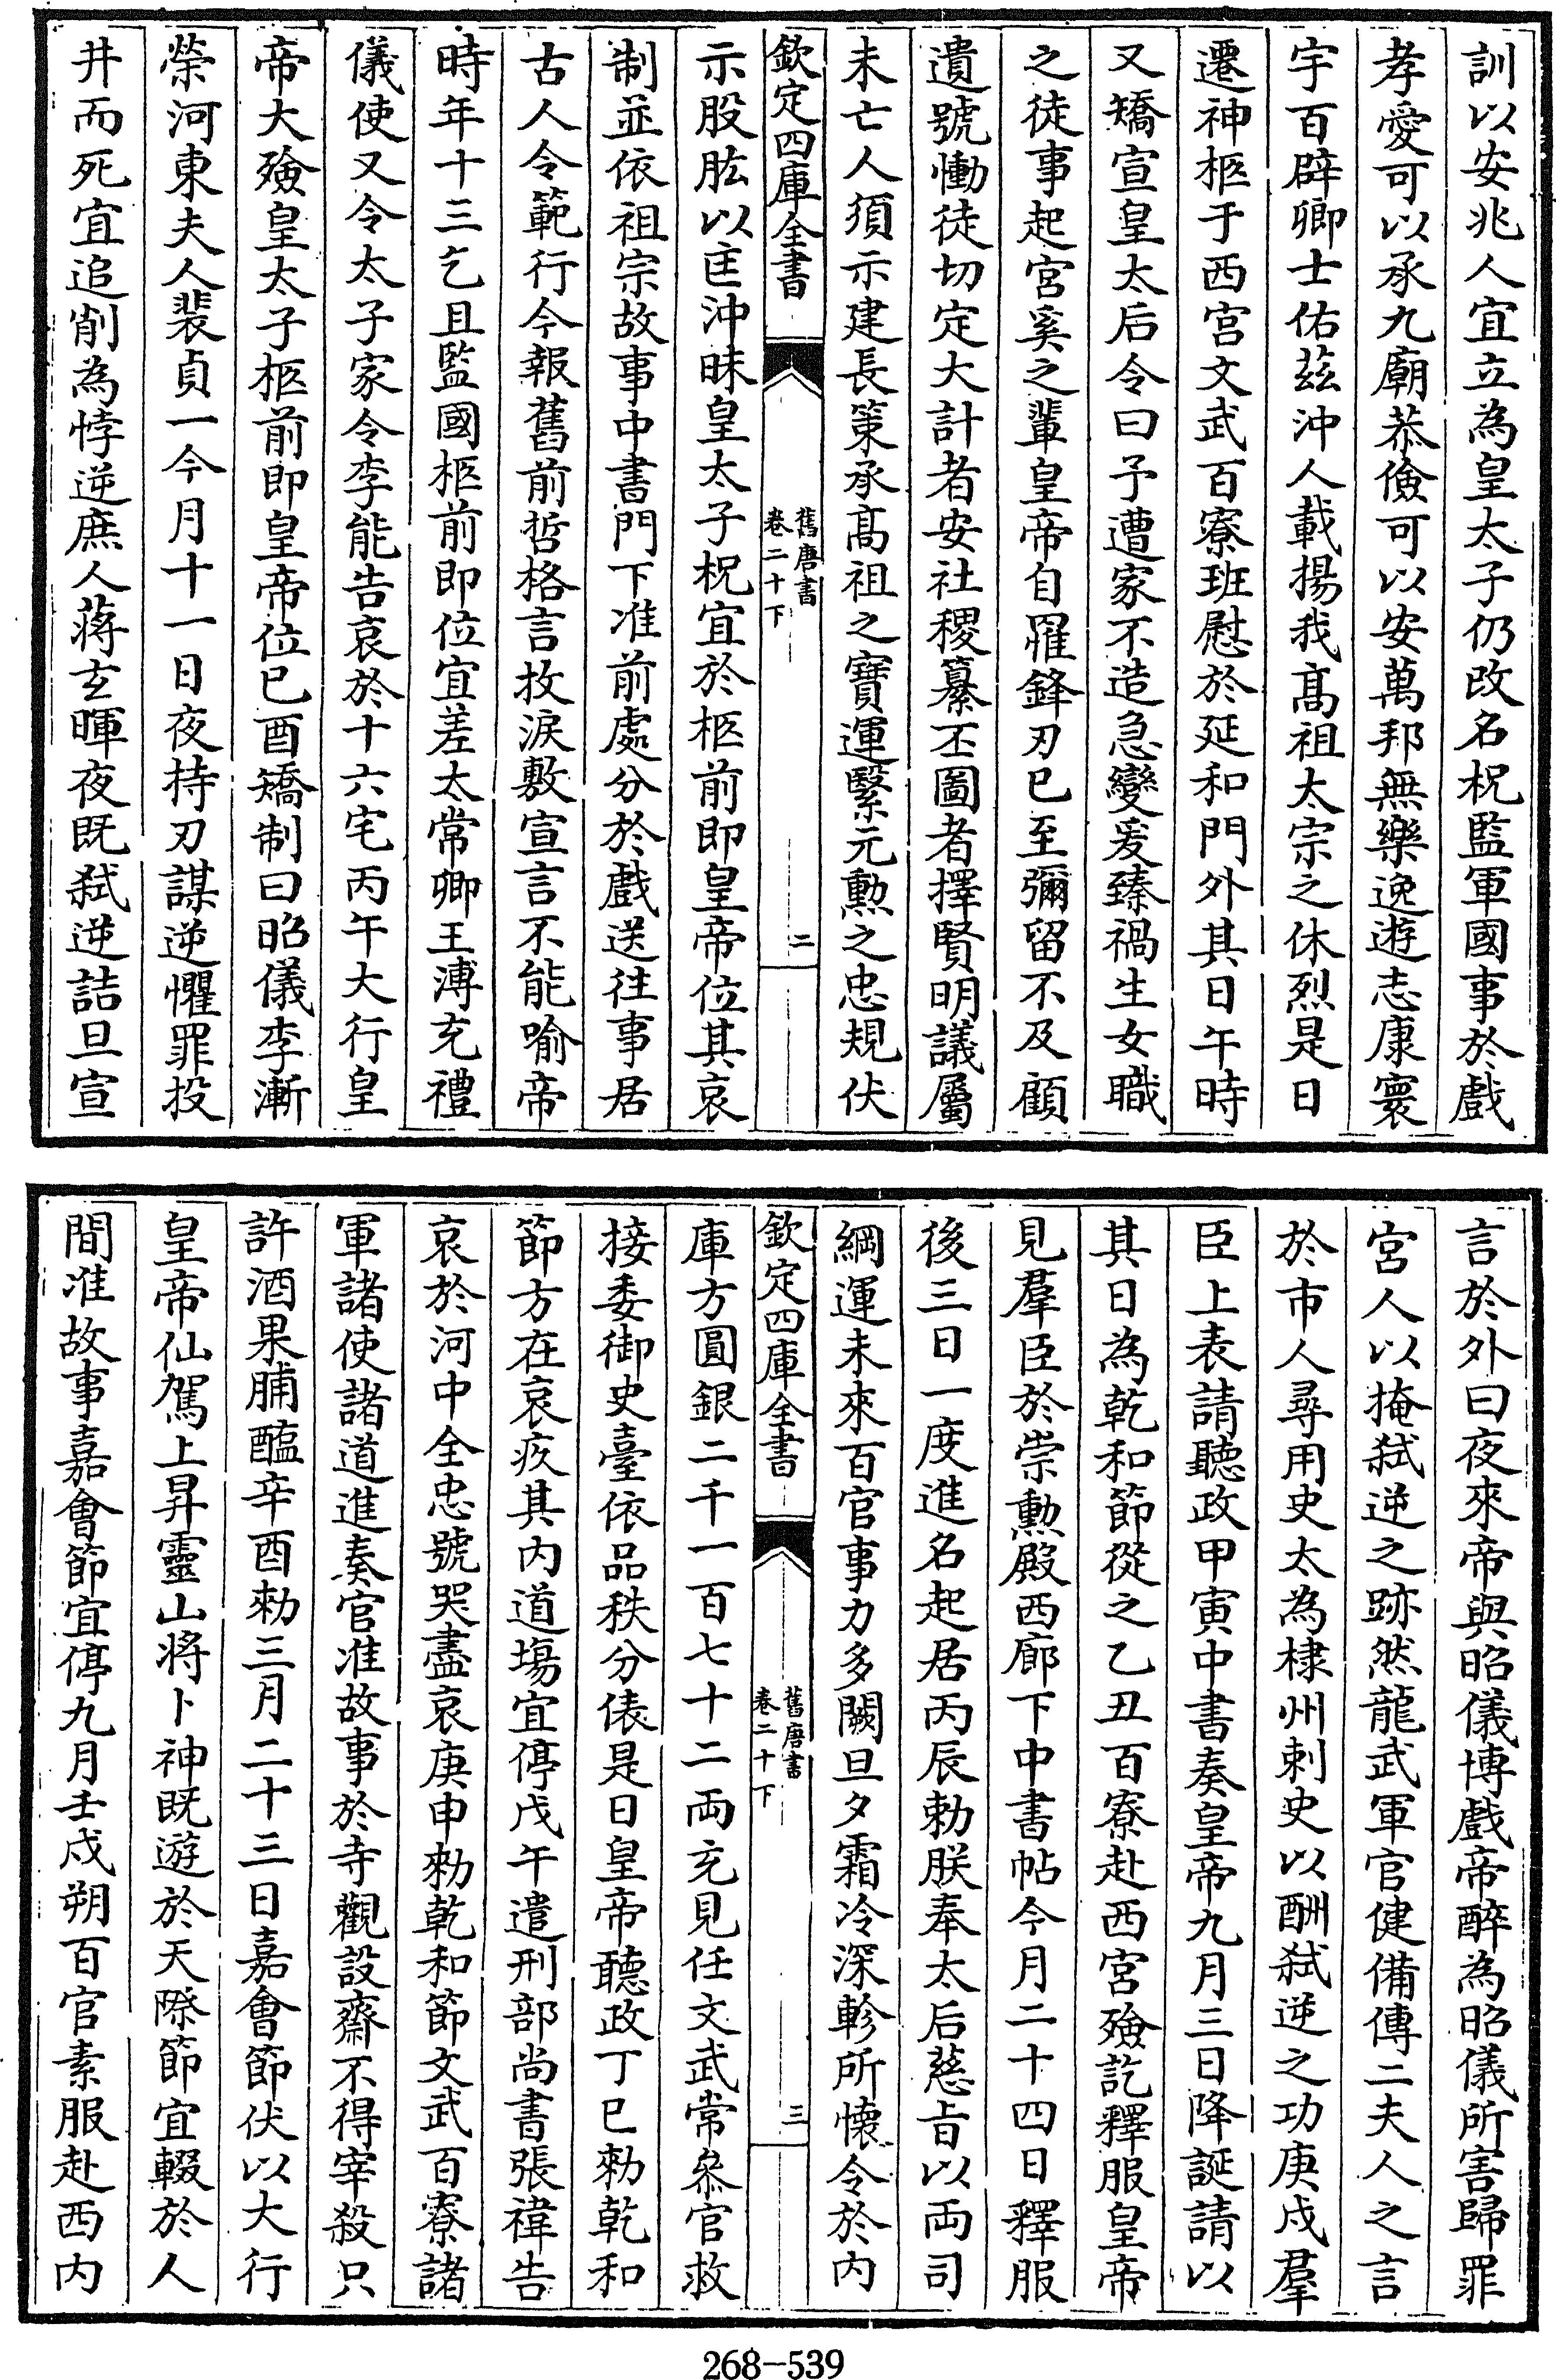 訓以安兆人宜立為皇太子仍改名柷監軍國事於戲
孝愛可以承九廟恭儉可以安萬邦無樂逸遊志康寰
宇百辟卿士佑茲沖人載揚我髙祖太宗之休烈是日
遷神柩于西宫文武百寮班慰於延和門外其日午時
又矯宣皇太后令曰予遭家不造急變爰臻禍生女職
之徒事起宮奚之輩皇帝自罹鋒刃已至彌留不及顧
遺號慟徒切定大計者安社稷纂丕圖者擇賢明議屬
未亡人須示建長策承髙祖之寶運緊元勲之忠規伏
欽定四庫全書
舊唐書
卷二十下
二
示股肱以匡沖昧皇太子柷宜於柩前即皇帝位其哀
制並依祖宗故事中書門下准前處分於戲送往事居
古人令範行今報舊前哲格言抆淚敷宣言不能喻帝
時年十三乞且監國柩前即位宜差太常卿王溥充禮
儀使又令太子家令李能告哀於十六宅丙午大行皇
帝大殮皇太子柩前即皇帝位已酉矯制曰昭儀李漸
榮河東夫人裴貞一今月十一日夜持刃謀逆懼罪投
井而死宜追削為悖逆庶人蔣玄暉夜既弑逆詰旦宣
言於外曰夜來帝與昭儀博戲帝醉為昭儀所害歸罪
宮人以掩弑逆之跡然龍武軍官健備傳二夫人之言
於市人尋用史太為棣州刺史以酬弑逆之功庚戍羣
臣上表請聽政甲寅中書奏皇帝九月三日降誕請以
其日為乾和節從之乙丑百寮赴西宮殮訖釋服皇帝
見羣臣於崇勲殿西廊下中書帖今月二十四日釋服
後三日一度進名起居丙辰勅朕奉太后慈㫖以両司
綱運未來百官事力多闕旦夕霜冷深軫所懷令於内
欽定四庫全書
舊唐書
卷二十下
三
庫方圓銀二千一百七十二両充見任文武常叅官救
接委御史臺依品秩分俵是日皇帝聽政丁巳勅乾和
節方在哀疚其内道塲宜停戊午遣刑部尚書張禕告
哀於河中全忠號哭盡哀庚申勅乾和節文武百寮諸
軍諸使諸道進奏官准故事於寺觀設齋不得宰殺只
許酒果脯醢辛酉勅三月二十三日嘉會節伏以大行
皇帝仙駕上昇靈山將卜神既遊於天際節宜輟於人
間准故事嘉會節宜停九月壬戍朔百官素服赴西内
268-539